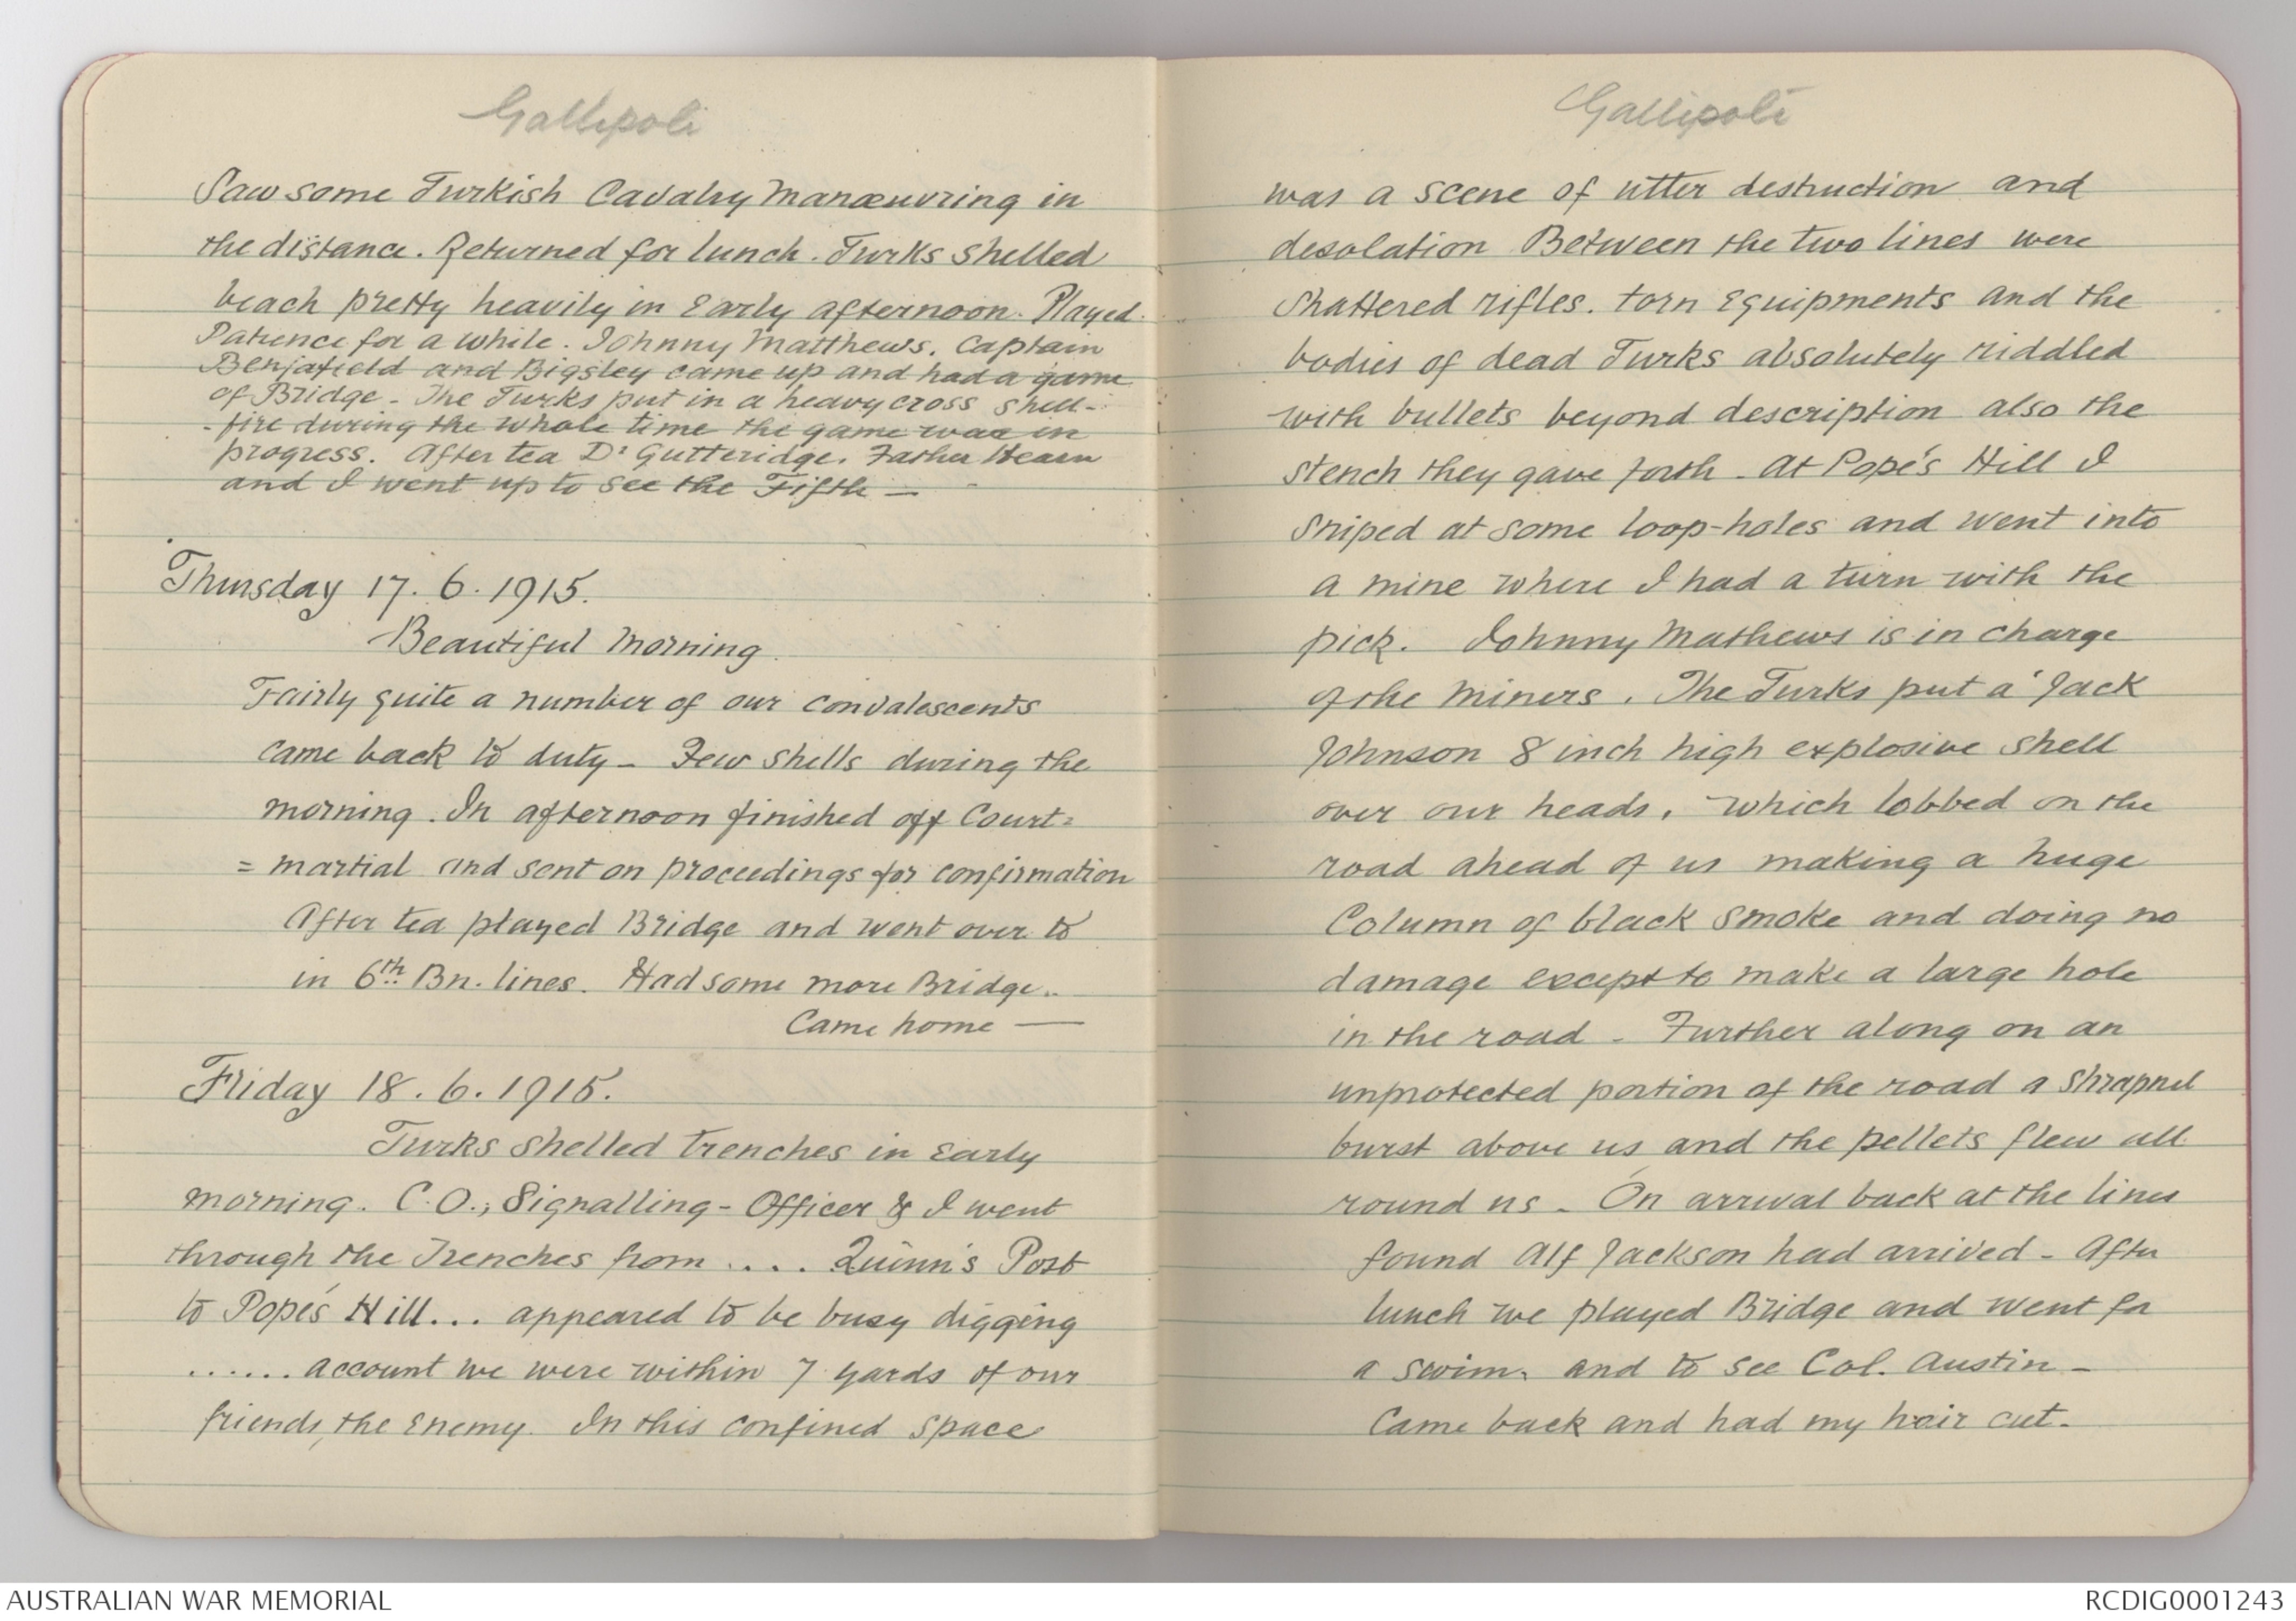 Gallipoli
Saw some Turkish Cavalry Manœuvring in
the distance. Returned for lunch. Turks shelled
beach pretty heavily in Early afternoon. Played
Patience for a while. Johnny Matthews. Captain
Benjafield and Bigsley came up and had a game
of Bridge - The Turks put in a heavy cross shell-
-fire during the whole time the game was in
progress. After tea Dr Gutteridge, Father Hearn
and I went up to see the Fifth —
Thursday 17. 6. 1915.
Beautiful Morning.
Fairly quite a number of our convalescents
came back to duty - Few shells during the
morning. In afternoon finished off Court=
= martial and sent on proceedings for confirmation
After tea played Bridge and went over to
in 6th Bn. lines. Had some more Bridge..
Came home —
Friday 18. 6. 1915.
Turks shelled trenches in Early
morning. C.O., Signalling-Officer & I went
through the Trenches from .... Quinn's Post
to Pope's Hill... appeared to be busy digging
...... account we were within 7 yards of our
friends, the Enemy. In this confined space
Gallipoli
was a scene of utter destruction and
desolation Between the two lines were
Shattered rifles. torn Equipments and the
bodies of dead Turks absolutely riddled
with bullets beyond description also the
stench they gave forth - At Pope's Hill I
sniped at some loop-holes and went into
a mine where I had a turn with the
pick. Johnny Mathews is in charge
of the Miners. The Turks put a 'Jack
Johnson 8 inch high explosive shell
over our heads, which lobbed on the
road ahead of us making a huge
Column of black smoke and doing no
damage except to make a large hole
in the road - Further along on an
unprotected portion of the road a shrapnel
burst above us and the pellets flew all
round us - On arrival back at the lines
found Alf Jackson had arrived - After
lunch we played Bridge and went for
a swim, and to see Col. Austin -
Came back and had my hair cut.
AUSTRALIAN WAR MEMORIAL
RCDIG0001243